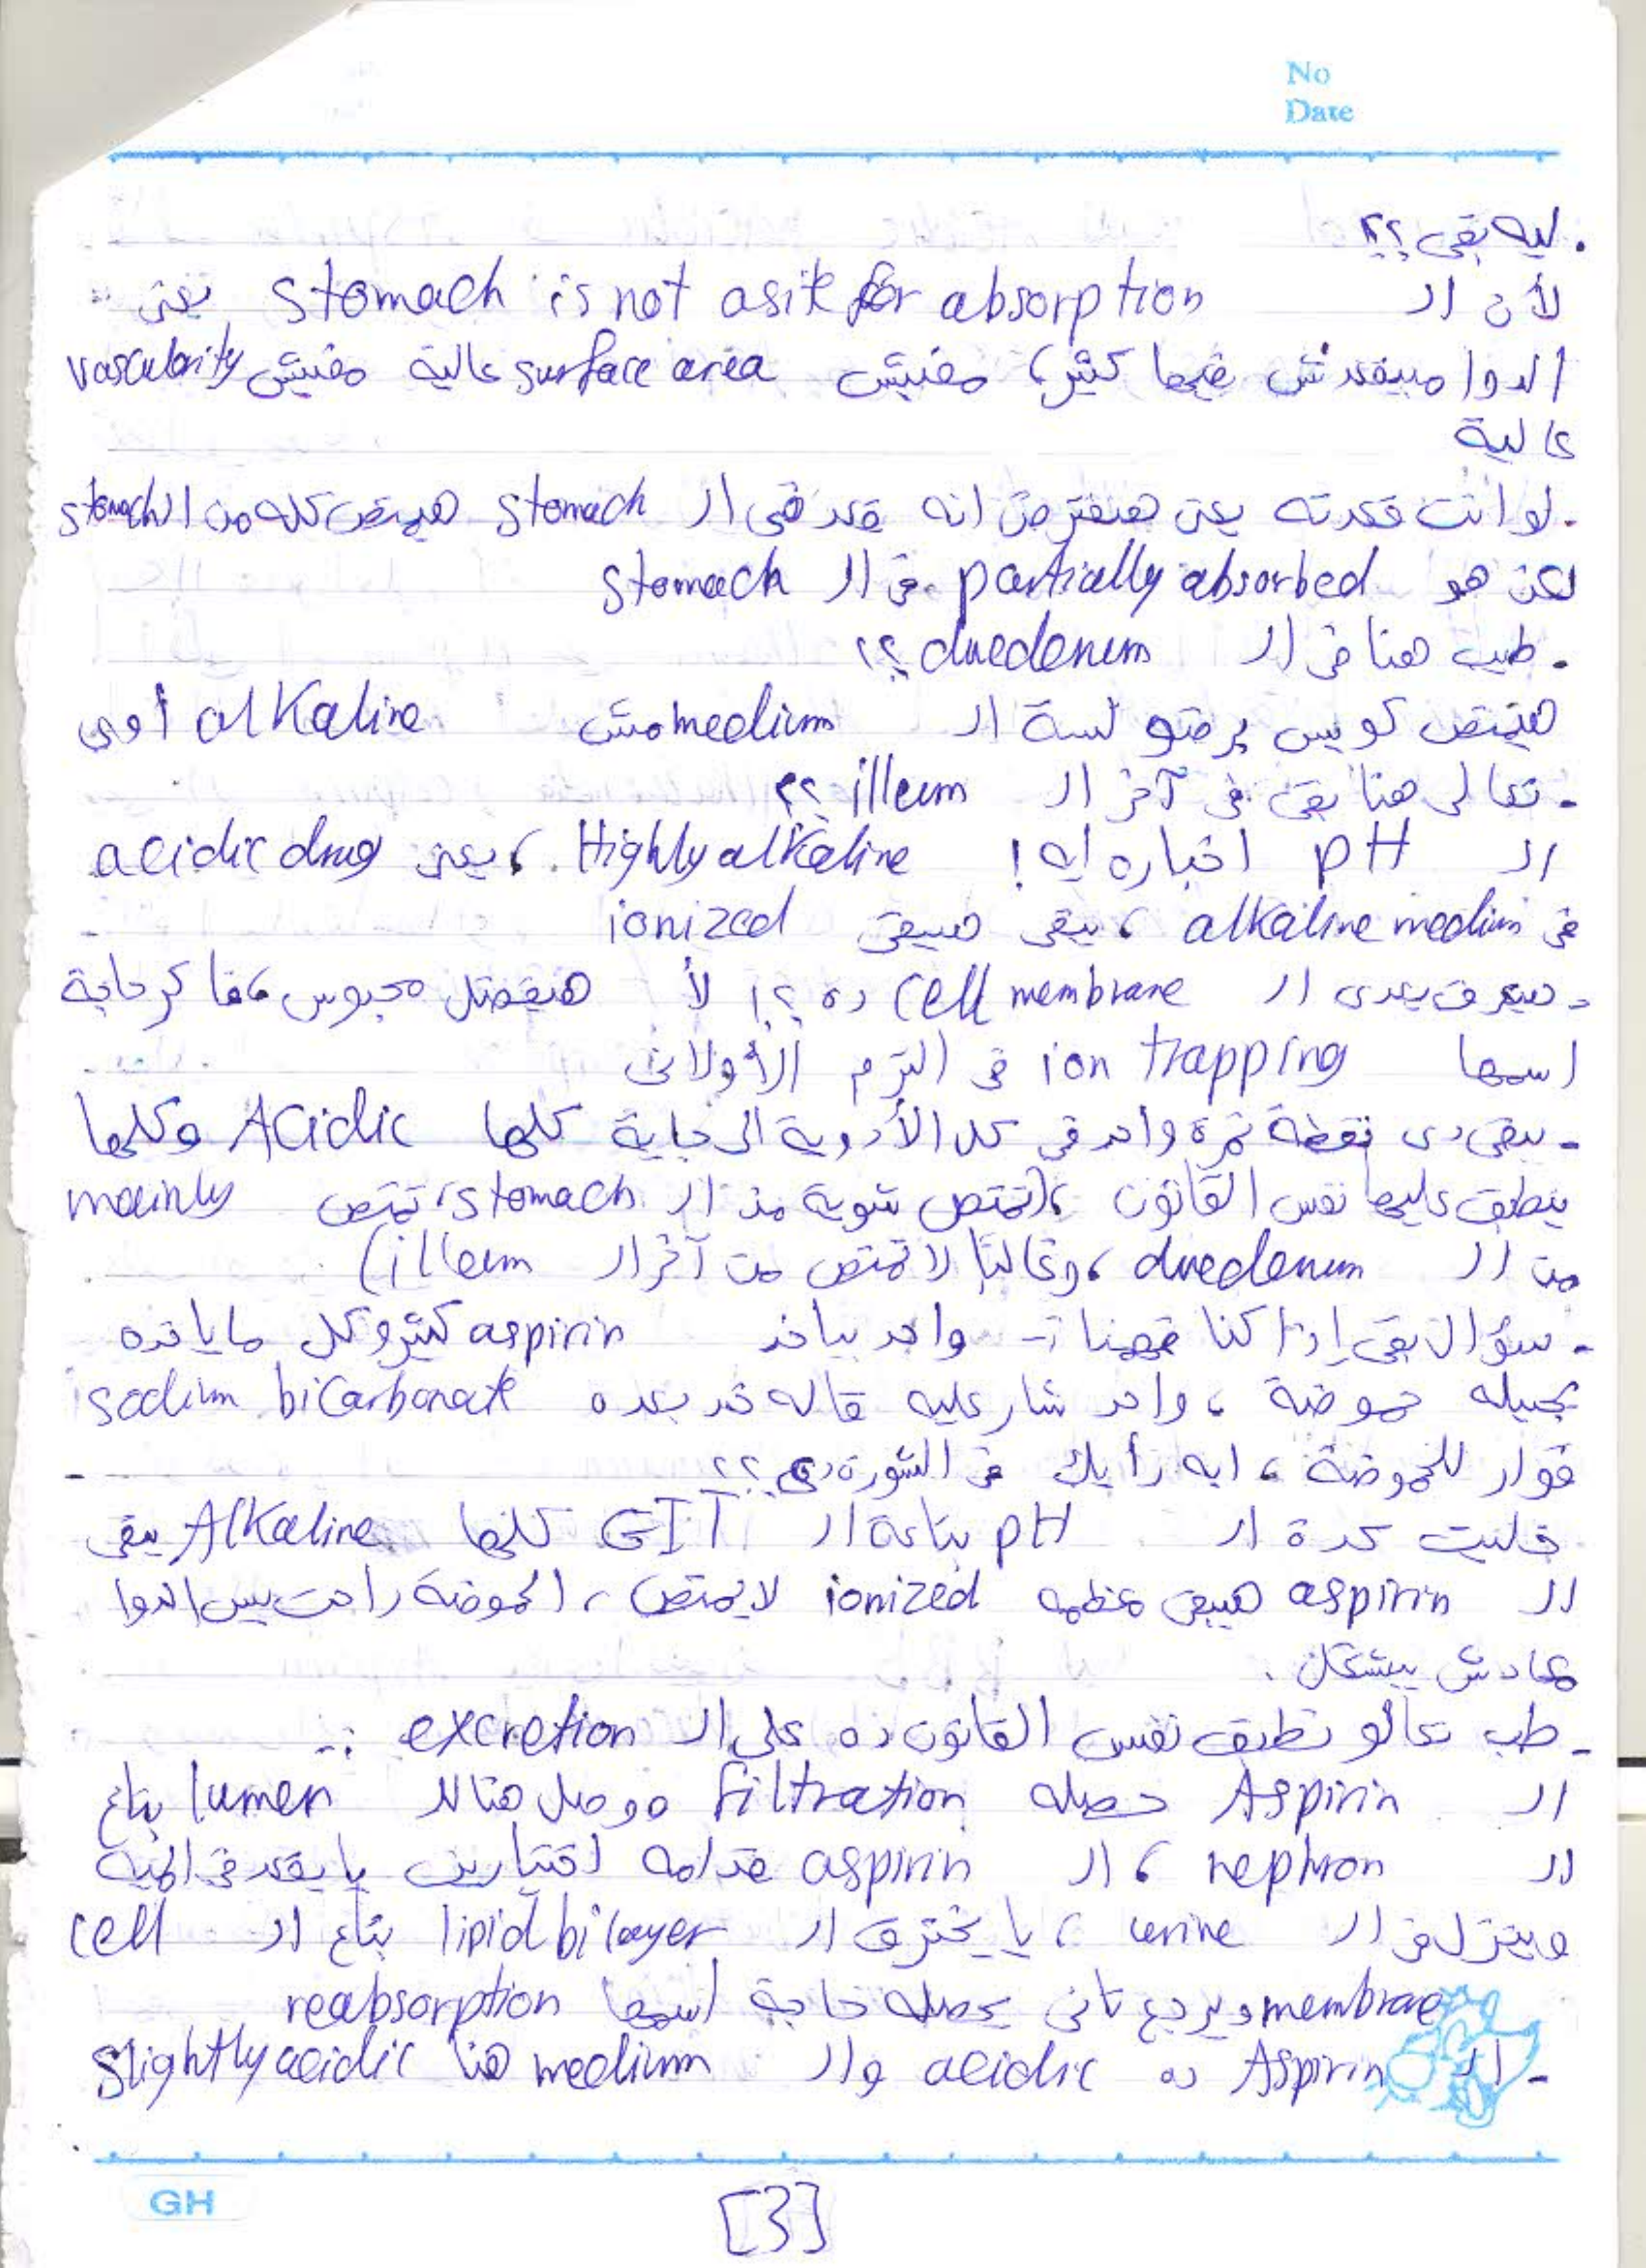 No
Date
. ليه بقى ؟؟
لأن الـ stomach is not a site for absorption يعنى :
الدوا مبيقعدش فيها كتير، مفيش surface area عالية مفيش vascularity
عالية
. لو انت قعدته يعنى هنفترض انه قعد فى الـ stomach هيمتص كله من الـ stomach
لكن هو partially absorbed فى الـ stomach
. طيب هنا فى الـ duedenum ؟؟
هيتمتص كويس برضو لسة الـ medium مش alkaline أوى
- تعالى هنا بقى فى آخر الـ illeum ؟؟
الـ pH اخباره ايه ! Highly alkaline ، يعنى acidic drug
فى alkaline medium ، يبقى هيبقى ionized
- هيعرف يعدى الـ cell membrane ده ؟! لأ هيفضل محبوس ، فاكر حاجة
اسمها ion trapping فى الترم الأولانى
- يبقى دى نقطة نمرة واحد فى كل الأدوية الى جاية كلها Acidic وكلها
ينطبق عليها نفس القانون ، (تمتص شوية من الـ stomach ، تمتص mainly
من الـ duedenum ، وغالبًا لا تمتص من آخر الـ illeum)
- سؤال بقى إذا كنا فهمنا :- واحد بياخد aspirin كتير وكل ما ياخده
بيجيله حموضة ، واحد شار عليه قاله خد بعده sodium bicarbonate
فوار للحموضة ، ايه رأيك فى الشورة دى ؟؟
خليت كدة الـ pH بتاعة الـ GIT كلها Alkaline يبقى
الـ aspirin هيبقى معظمه ionized لا يمتص ، الحموضة راحت بس الدوا
معادش بيشتغل .
- طب تعالو نطبق نفس القانون ده على الـ excretion :-
الـ Aspirin حصله filtration ووصل هنا للـ lumen بتاع
الـ nephron ، الـ aspirin قدامه اختيارين يا يقعد فى المية
وينزل فى الـ urine ، يا يخترق الـ lipid bilayer بتاع الـ cell
membrane ويرجع تانى يحصله حاجة اسمها reabsorption
- الـ Aspirin ده acidic والـ medium هنا Slightly acidic
GH
[3]